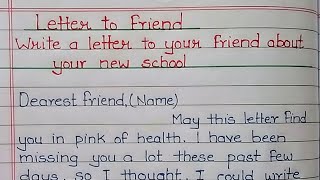 Letter to Friend
Write a letter to your friend about
your new school
Dearest friend,(Name)
May this letter find
you in pink of health. I have been
missing you a lot these past few
days, so I thought, I could write